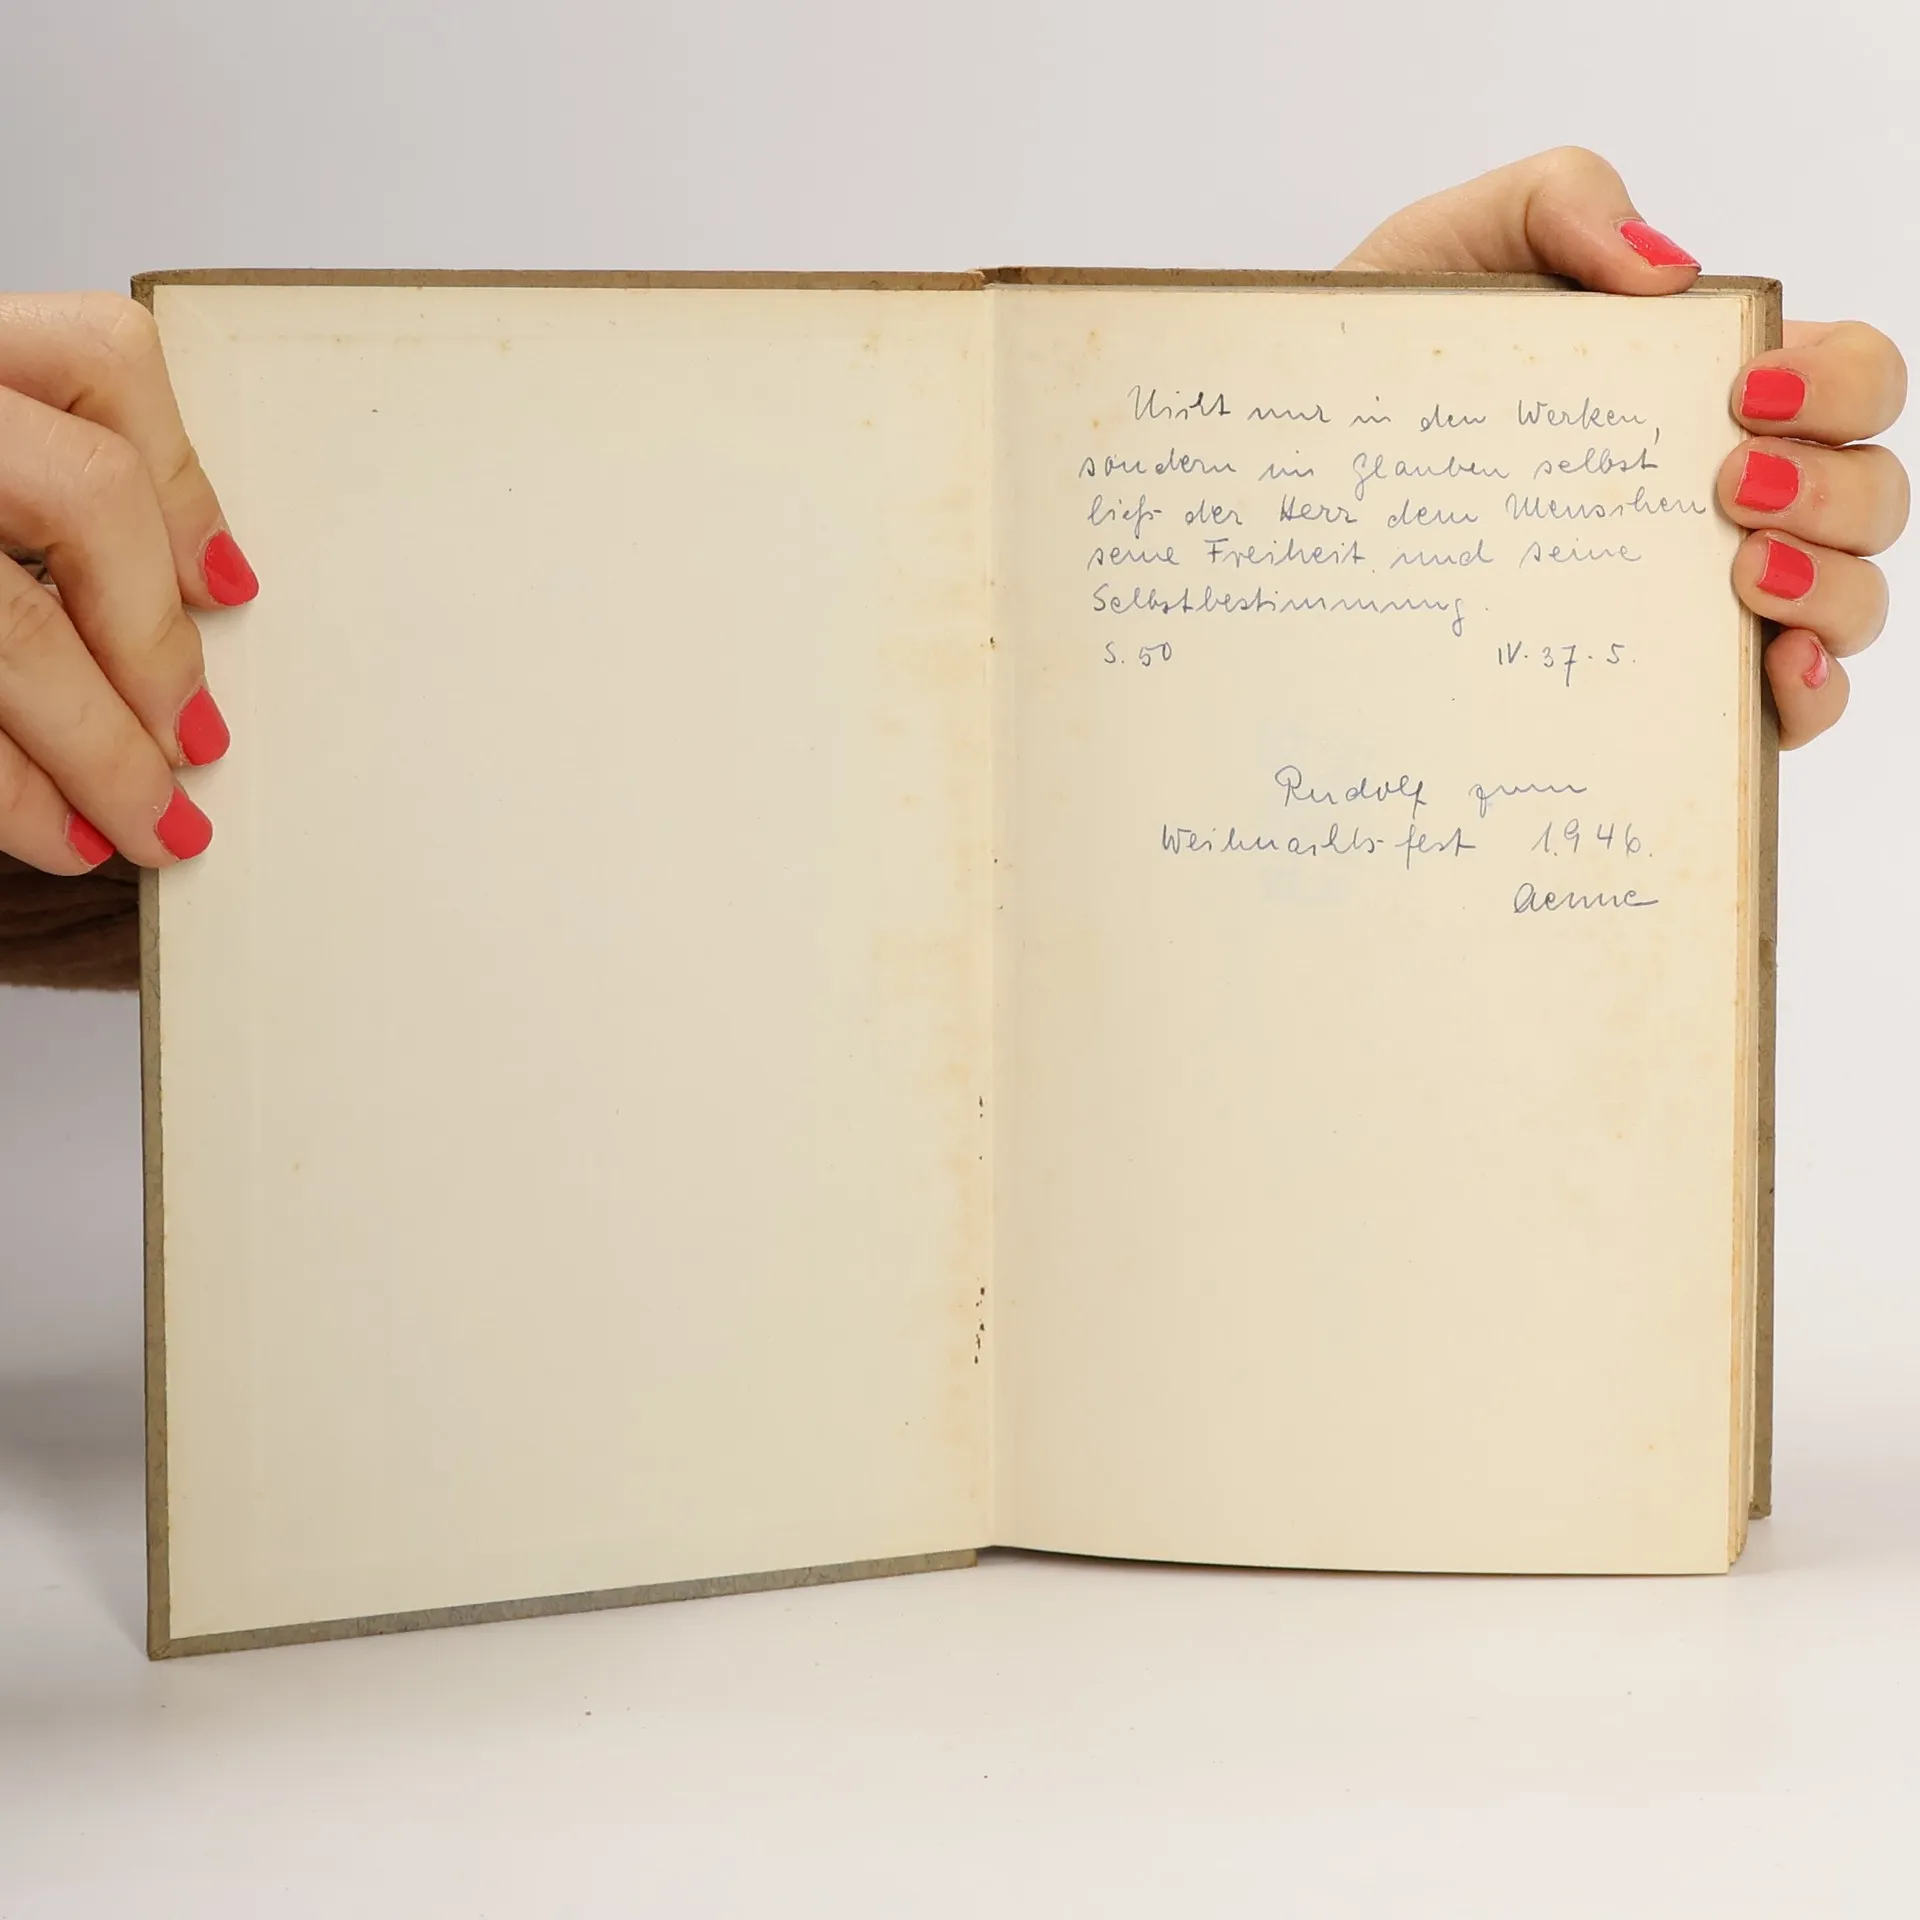 Nicht nur in den Werken,
sondern im Glauben selbst
ließ der Herr dem Menschen
seine Freiheit und seine
Selbstbestimmung.
S. 50 IV. 37. 5.
Rudolf zum
Weihnachts-fest 1946.
Aenne